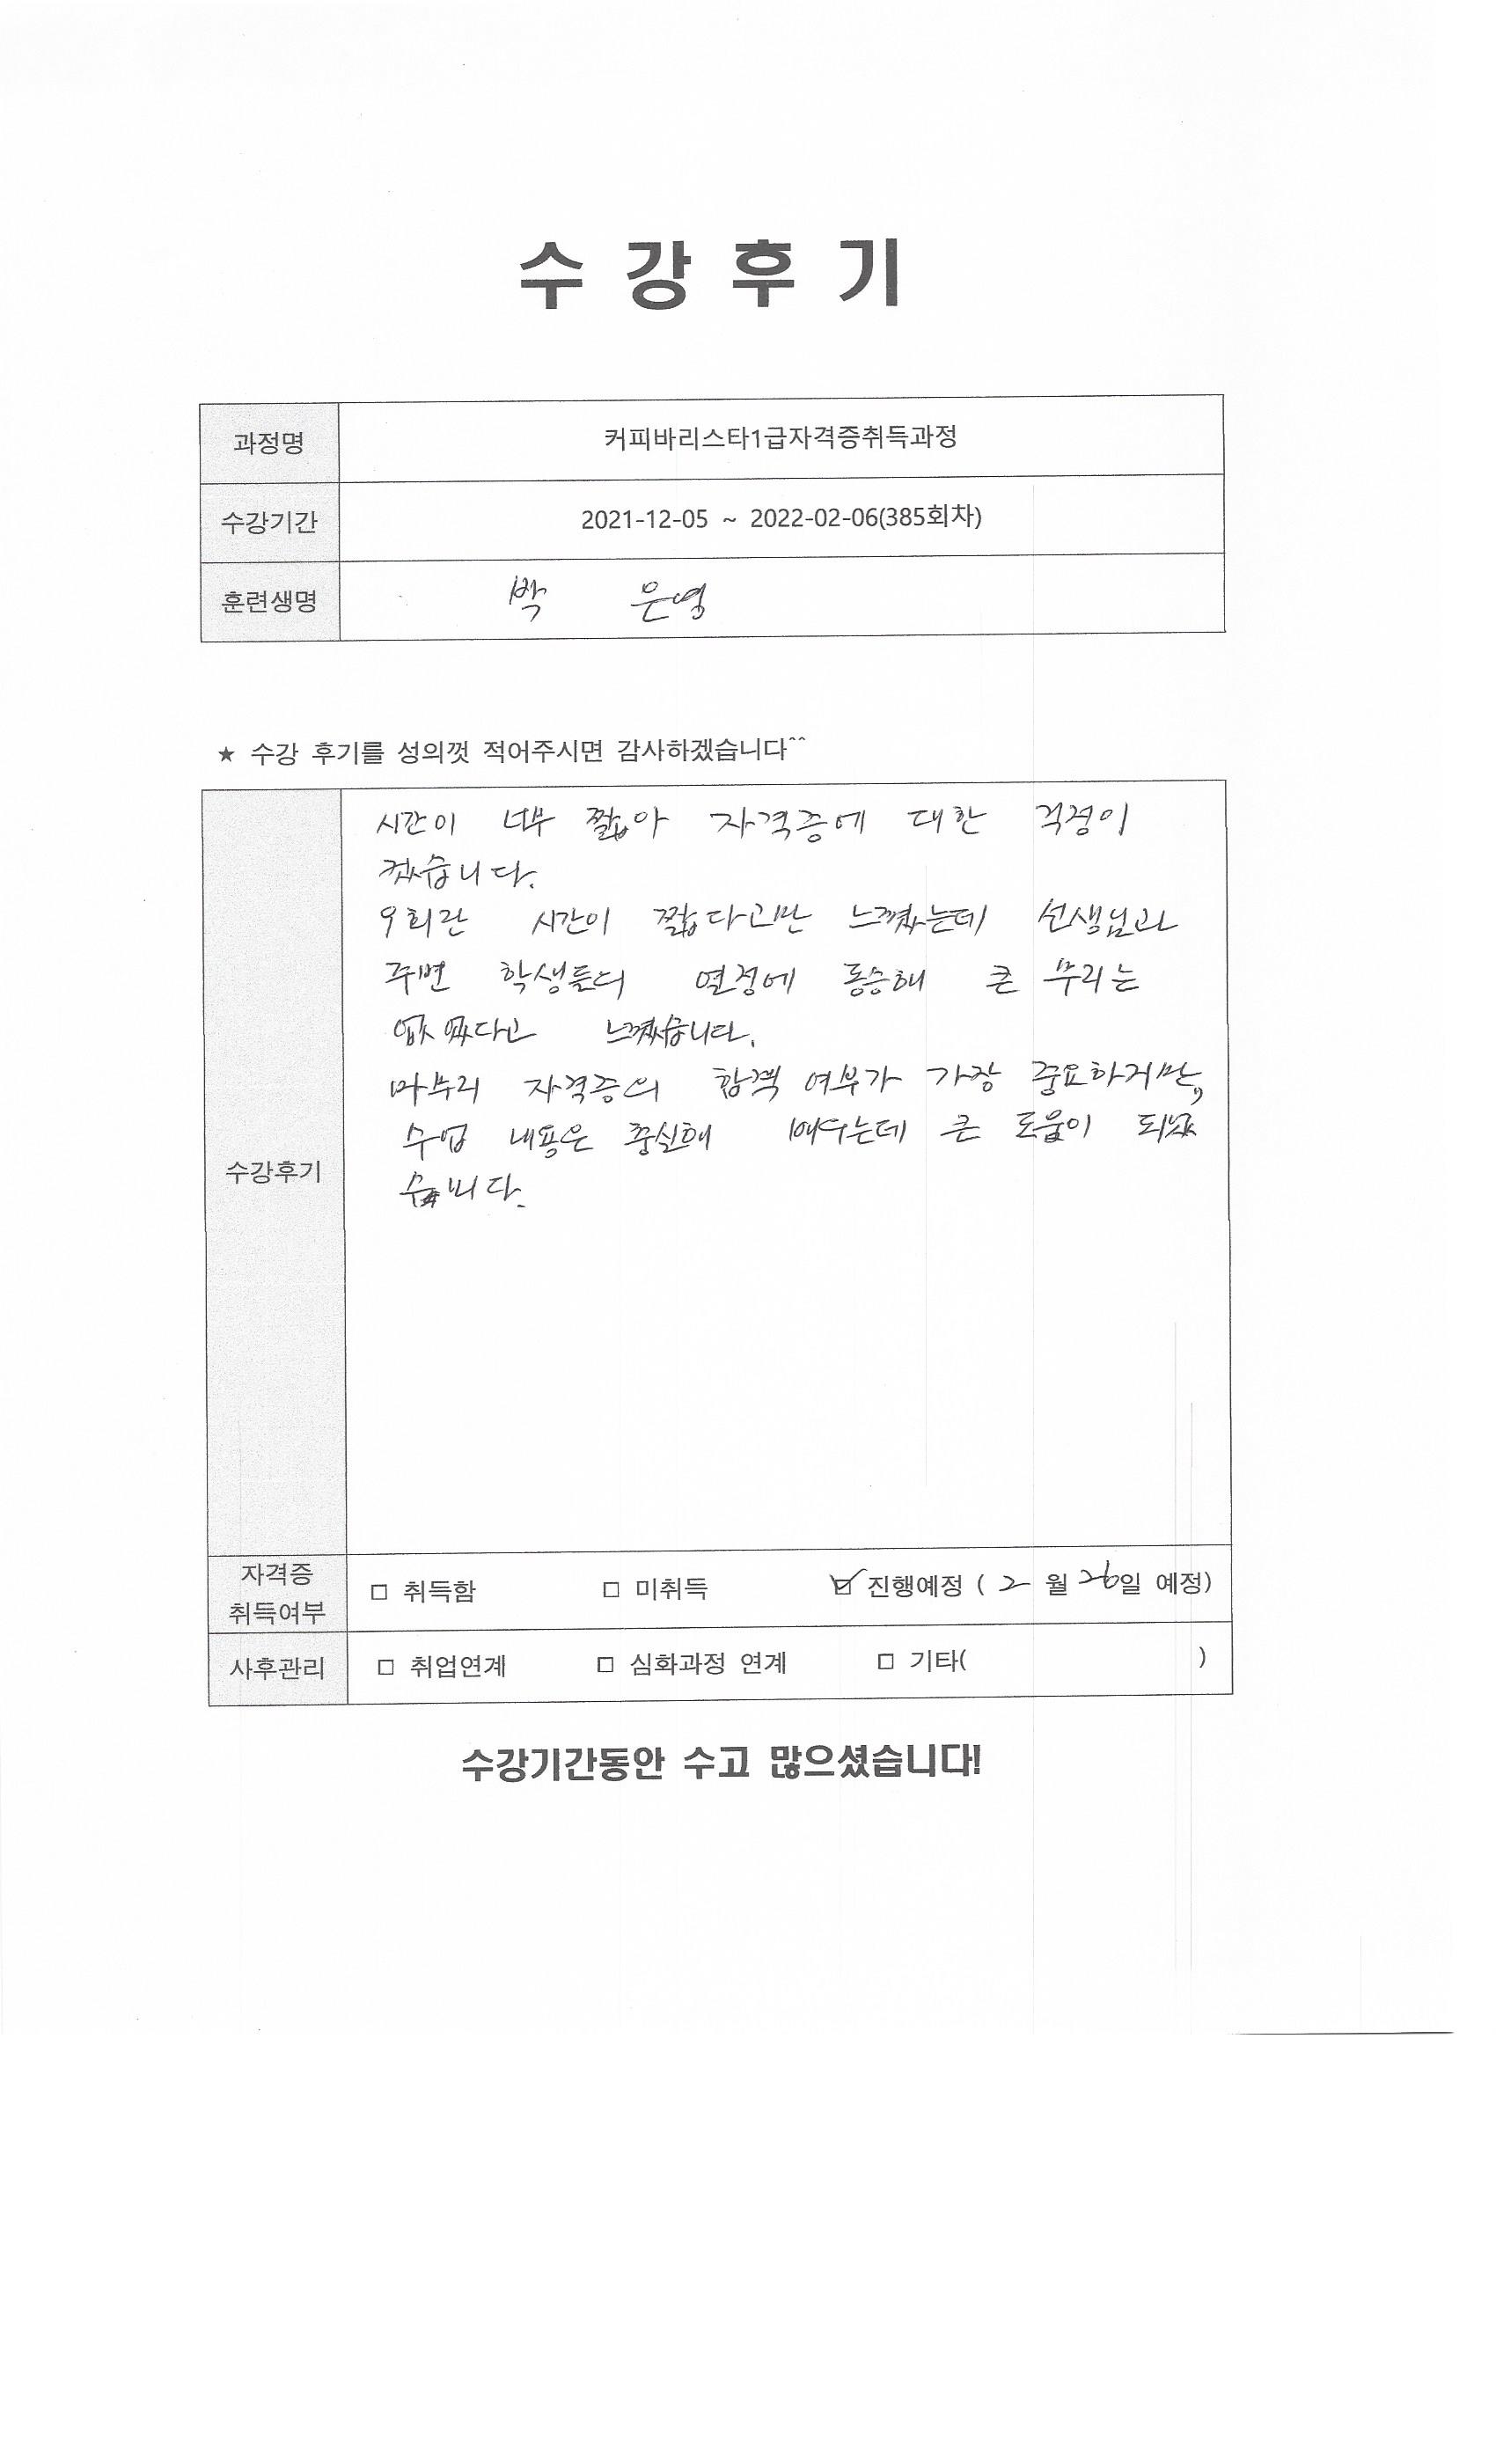 수 강 후 기
과정명 커피바리스타1급자격증취득과정
수강기간 2021-12-05 ~ 2022-02-06(385회차)
훈련생명 박 은영
★ 수강 후기를 성의껏 적어주시면 감사하겠습니다^^
수강후기
시간이 너무 짧아 자격증에 대한 걱정이
컸습니다.
9회란 시간이 짧다고만 느꼈는데 선생님과
주변 학생들의 열정에 동승해 큰 무리는
없었다고 느꼈습니다.
마무리 자격증의 합격 여부가 가장 중요하지만,
수업 내용은 충실해 배우는데 큰 도움이 되었
습니다.
자격증
취득여부
□ 취득함 □ 미취득 ☑ 진행예정 ( 2 월 26일 예정)
사후관리 □ 취업연계 □ 심화과정 연계 □ 기타( )
수강기간동안 수고 많으셨습니다!